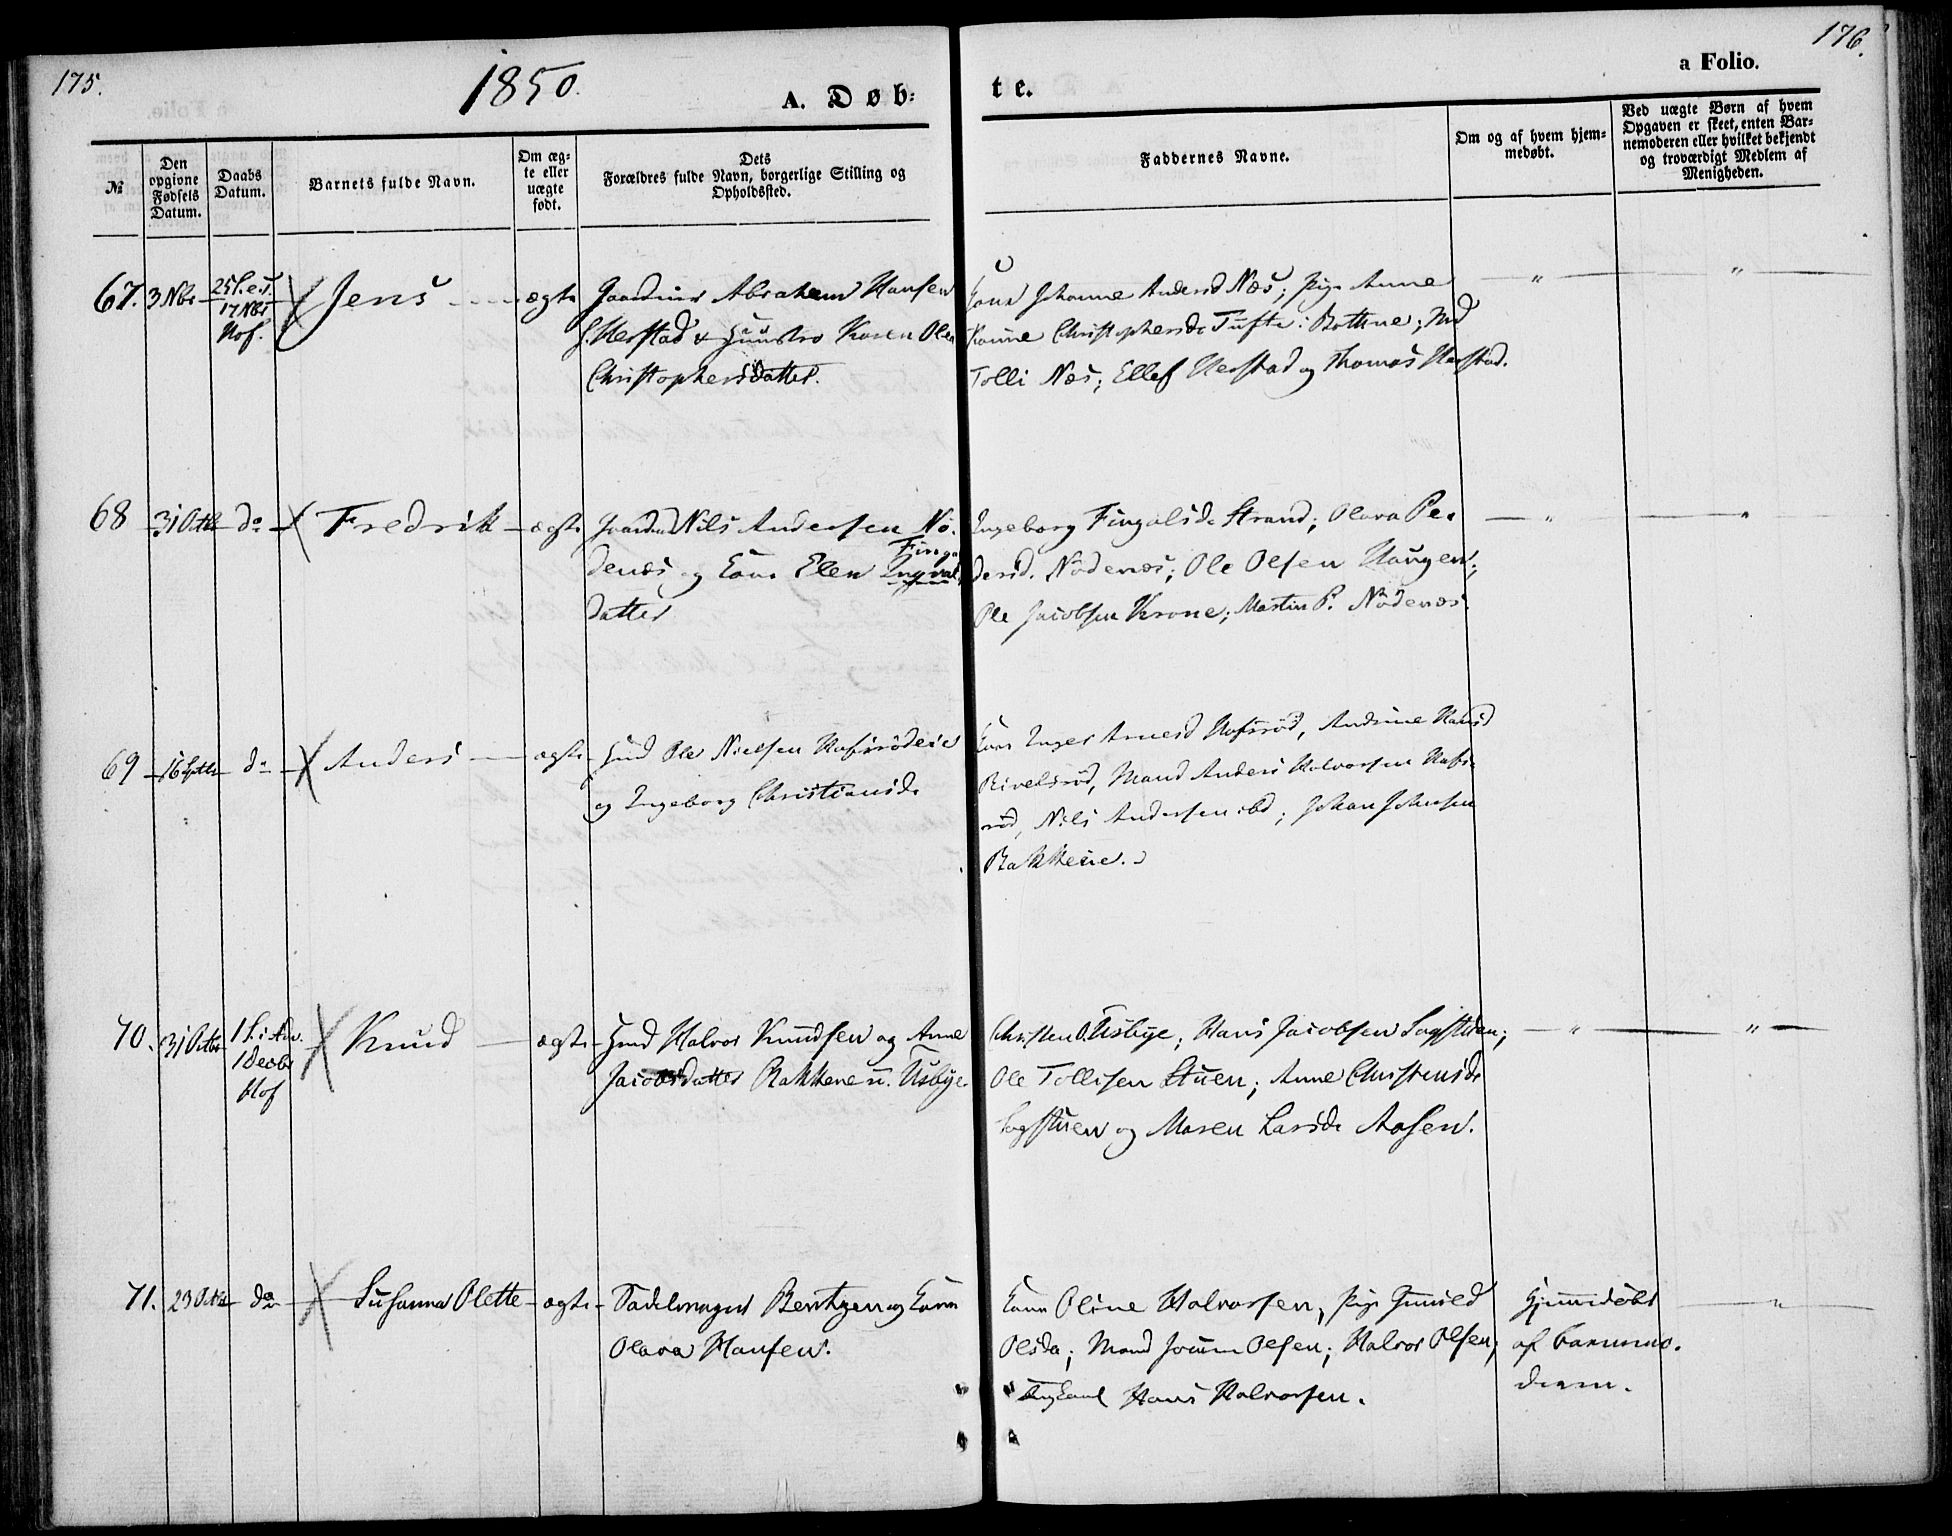 175.
1850.
A. Døb:
te.
a Folio.
176.
№
Den opgivne Fødsels Datum.
Daabs Datum.
Barnets fulde Navn.
Om ægte eller uægte født.
Dets Forældres fulde Navn, borgerlige Stilling og Opholdssted.
Faddernes Navne.
Om og af hvem hjemmedøbt.
Ved uægte Børn af hvem Opgaven er skeet, enten Barnemoderen eller hvilket bekjendt og troværdigt Medlem af Menigheden.
67. 3 Nbr 25 S. e. T. 17 Nbr Hof. Jens ægte
Gaardmd Abraham Hansen
Herstad & Huustro Karen Olea
Christophersdatter.
Kone Johanne Andersd Næs; Pige Anne
Christophersdr Tufte; Md
Tolli Næs; Ellef Herstad og Thomas Herstad.
"
"
68 31 Octbr do Fredrik ægte
Gaardmd Nils Andersen Nö-
Finga
denæs og Kone Elen Ingval
datter
Ingeborg Fingalsdr Strand; Olava Pe-
dersd. Nödenæs; Ole Olsen Haugen;
Ole Jacobsen Krone; Martin P. Nödenæs
"
"
69 16 Septbr do Anders ægte
Hmd Ole Nielsen Hafsrödeie
og Ingeborg Christiansdr
Kone Inger Arnesd Hafsröd, Andrine Hansd
Rivelsröd, Mand Anders Halvorsen Hafs-
röd, Nils Andersen ibd; Johan Johnsen
Bakkeeie.
70. 31 Octbr 1 S. i Adv. 1 Decbr Hof Knud ægte
Hmd Halvor Knudsen og Anne
Jacobsdatter Bakkene u. Usbye
Christen O. Usbye; Hans Jacobsen Sagstuen;
Ole Tollefsen Stuen; Anne Christensdr
Sagstuen og Maren Larsdr Aasen.
"
"
71. 23 Octbr do Susanna Olette ægte
Sadelmager Bentzen og Kone
Olava Hansen.
Kone Oline Halvorsen, Pige Gunild
Olsdr; Mand Joen Olsen; Halvor Olsen;
Ungkarl Hans Halvorsen.
Hjemmedöbt
af Barnemo-
deren.
"